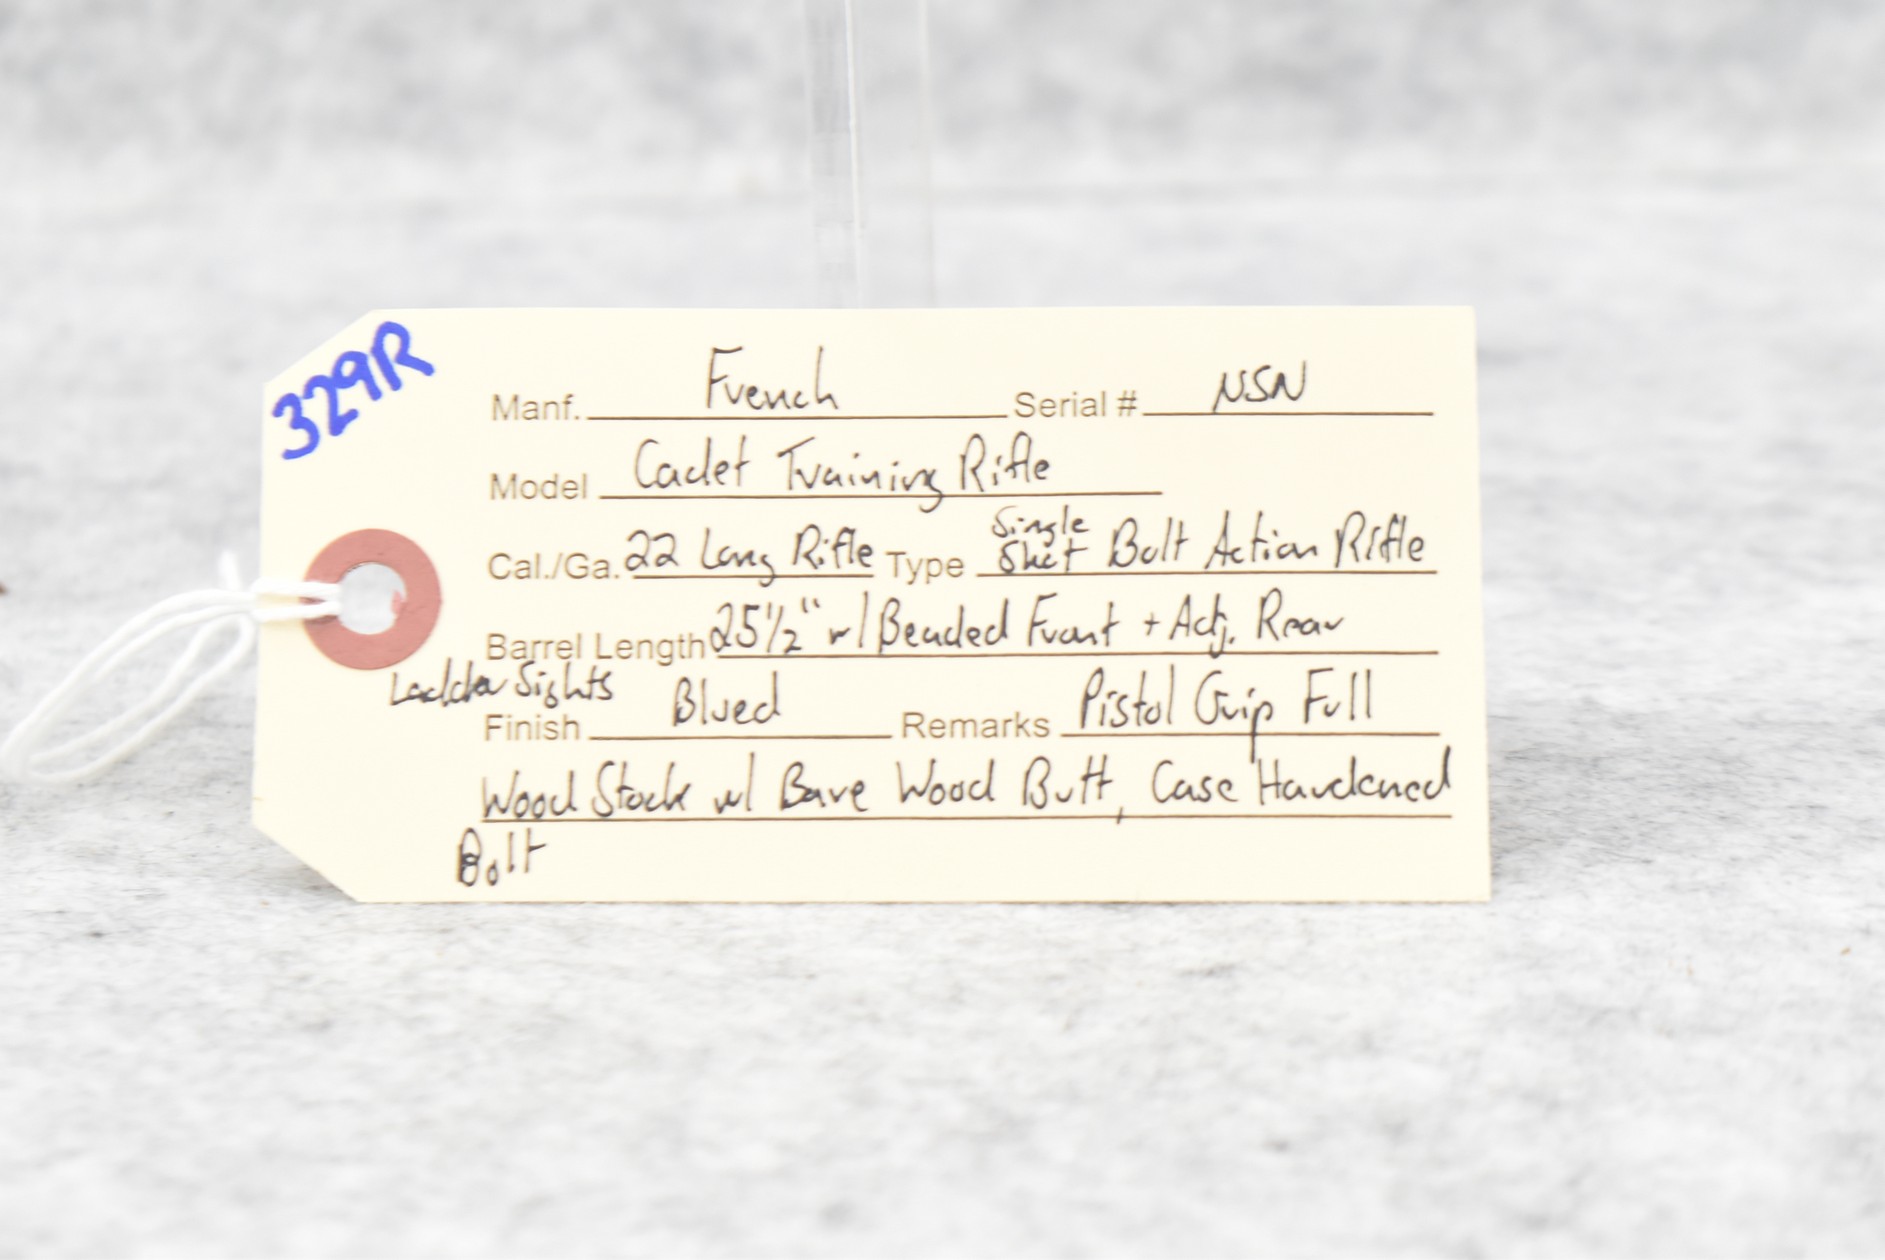 329R
Manf. French Serial # NSN
Model Cadet Training Rifle
Cal./Ga. 22 Long Rifle Type Single Shot Bolt Action Rifle
Barrel Length 25 1/2" w/ Beaded Front + Adj. Rear
Ladder Sights
Finish Blued Remarks Pistol Grip Full
Wood Stock w/ Bare Wood Butt, Case Hardened
Bolt